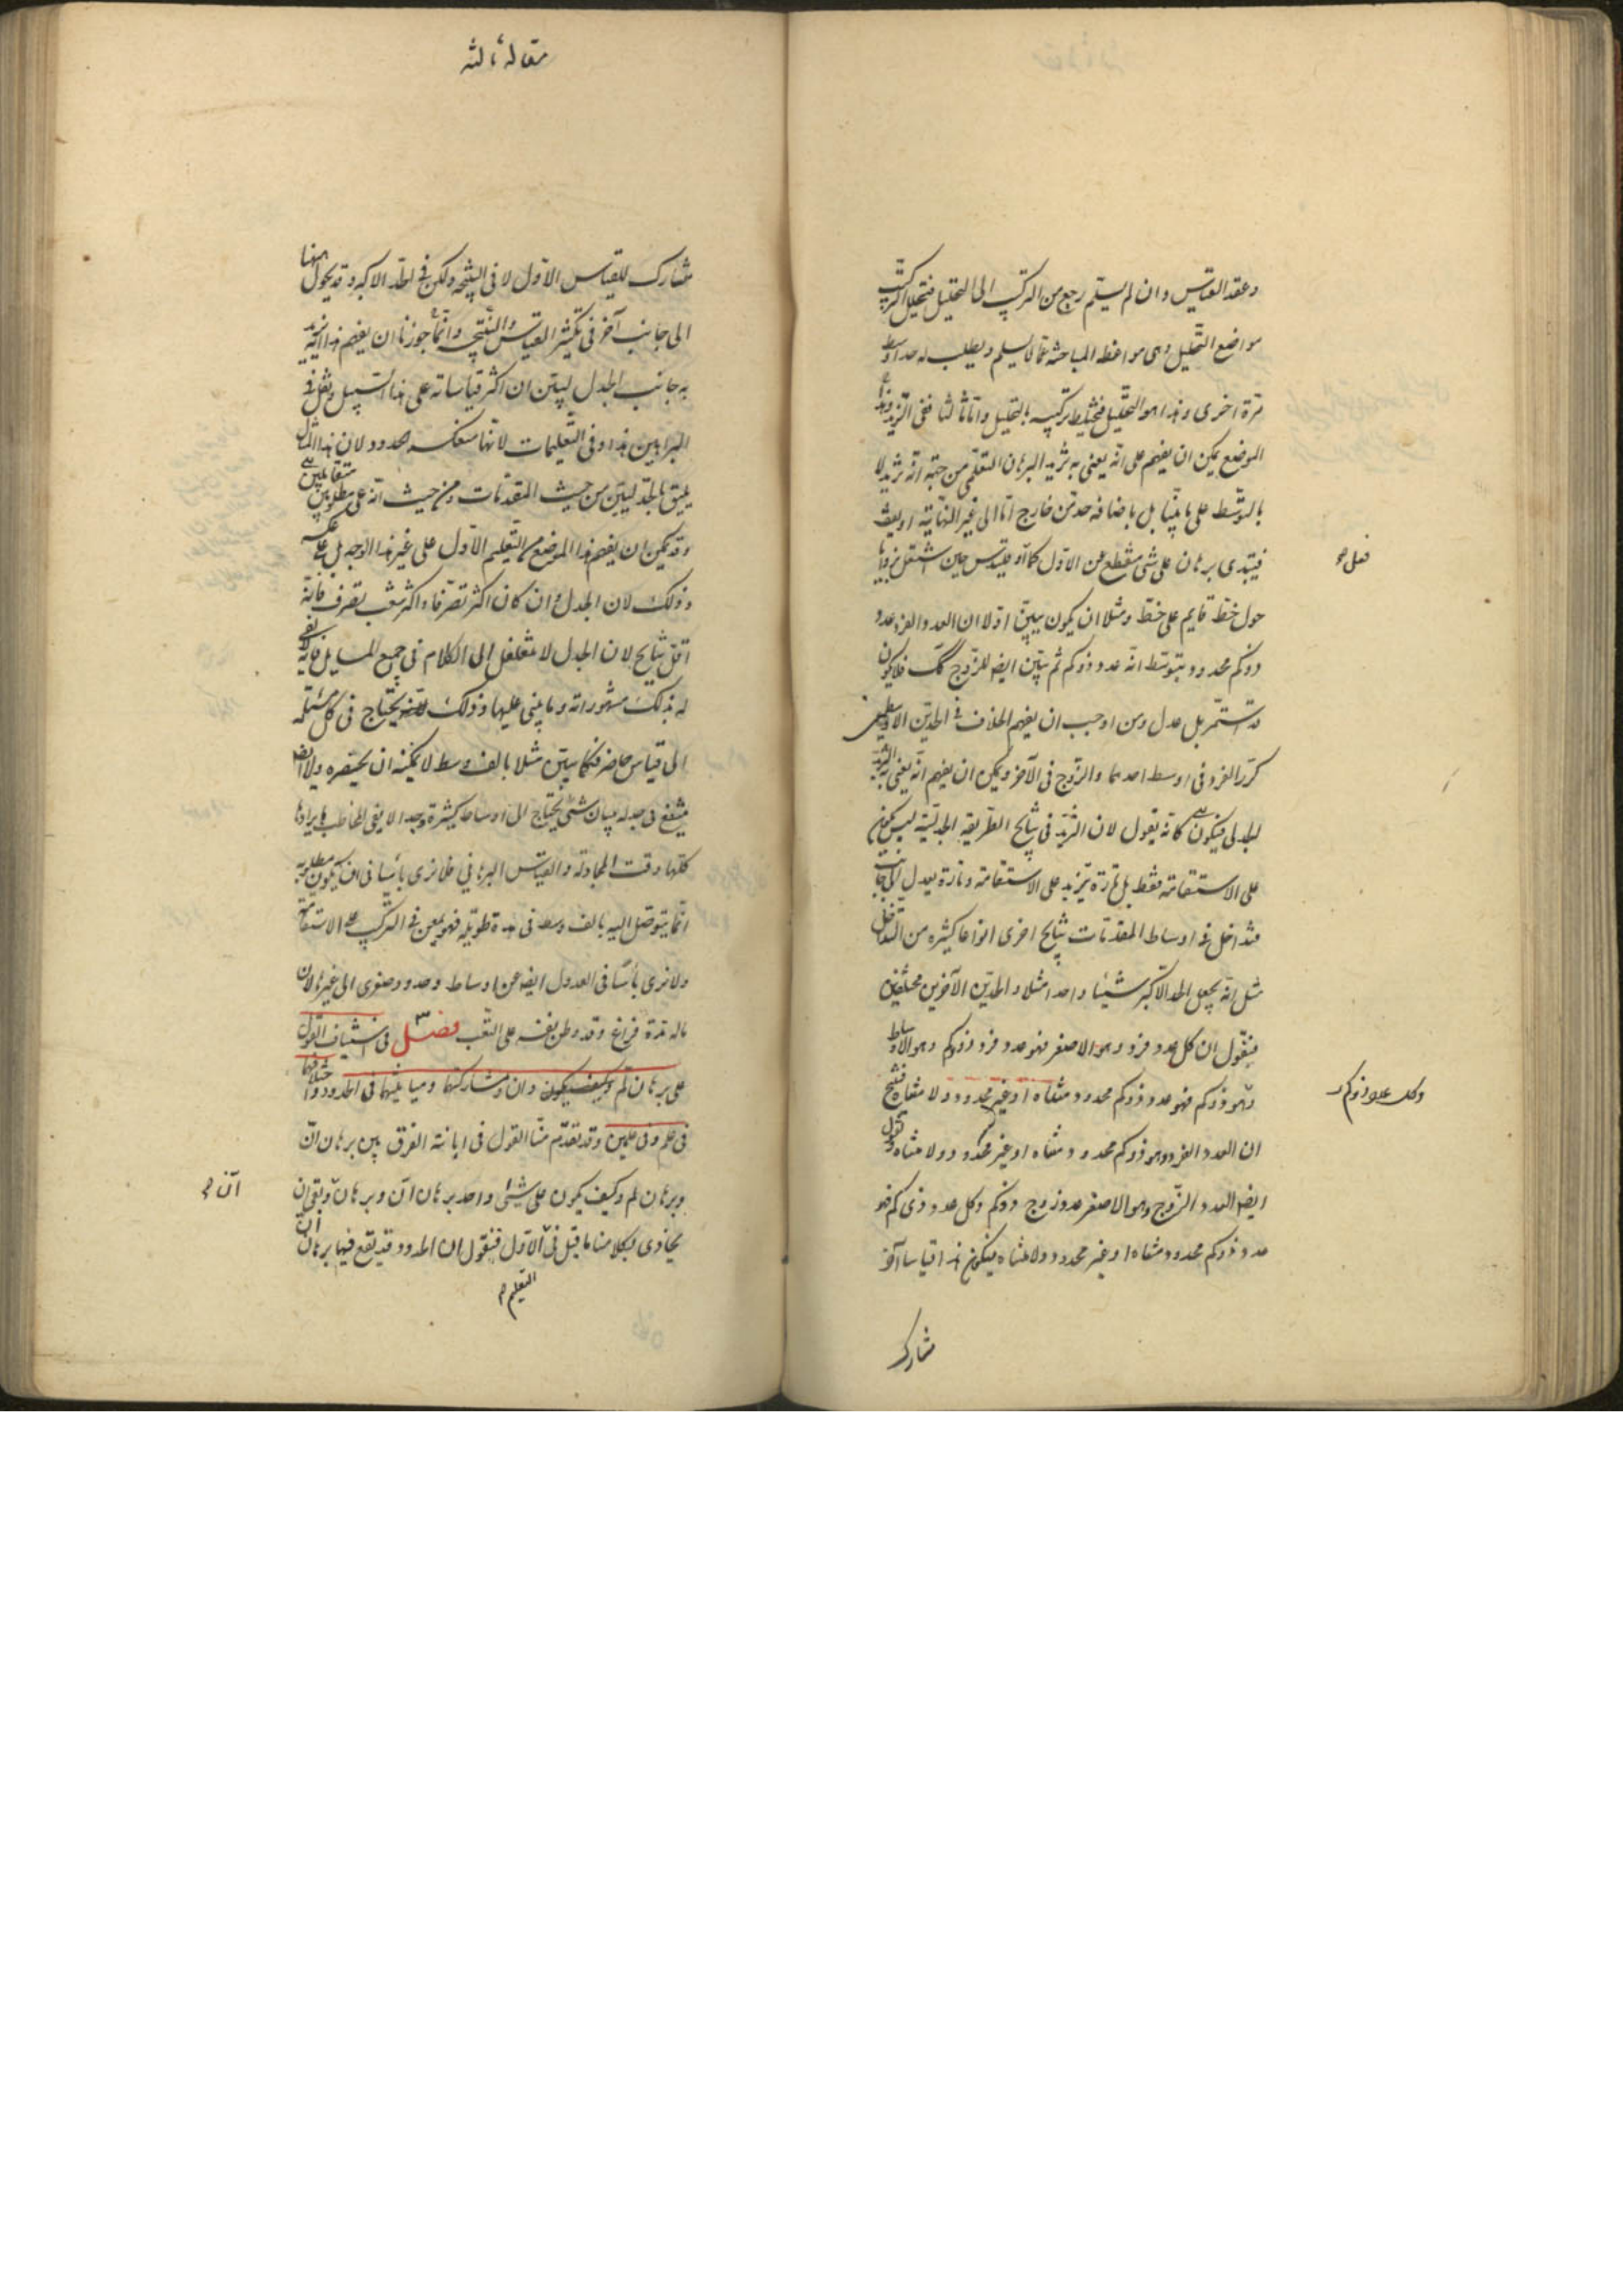 وعقد القياس وان لم يسلم رجع من التركيب الى التحليل فتحلل التركيب
مواضع التحليل وهى مواضع المباحثة عما لا يسلم ويطلب له حد اوسط
مرة اخرى وهذا هو التحليل فيختلط تركيبه بالتحليل واما ثالثا ففى التزيد وهذا
الموضع يمكن ان يفهم على انه يعنى به تزيد البرهان التعلمى من جهة انه تزيد لا
بالتوسط على ما بينا بل باضافة حد من خارج اما الى غير النهاية او يقف
فيبتدى برهان على شى منقطع عن الاول كما اوقليدس حين اشتغل بزوايا
فعل
حول خط قايم على خط ومثلا ان يكون يبين اولا ان العدد الفرد عدد
ذوكم محدود بتوسط انه عدد ذوكم ثم يبين ايضا للزوج كك فلا يكون
قد استمر بل عدل ومن اوجب ان يفهم الخلاف فى الحدين الاوسطين
كرر الفرد فى اوسط احدهما والزوج فى الآخر ويمكن ان يفهم انه يعنى به التزيد
الجدلى فيكون كانه يقول لان التزيد فى نتايج الطريقة الجدلية ليس يكون
على الاستقامة فقط بل تارة يتزيد على الاستقامة وتارة يعدل الى جانب
فتداخل فى اوساط المقدمات نتايج اخرى انواعا كثيره من التداخل
مثل انه يجعل الحد الاكبر شيئا واحدا مثلا والحدين الآخرين مختلفين
فيقول ان كل عدد فرد وهو الاصغر فهو عدد فرد ذوكم وهو الاوساط
وهو ذوكم فهو عدد ذوكم محدود متناه او غير محدود ولا متناه فينتج
وكل عدد ذوكم
ان العدد الفرد وهو ذوكم محدود متناه او غير محدود ولا متناه ونقول
ايضا العدد الزوج وهو الاصغر عدد زوج ذوكم وكل عدد ذى كم فهو
عدد ذوكم محدود متناه او غير محدود ولا متناه فيكون هذا قياسا آخر
مشارك
مقاله ثالثه
مشارك للقياس الاول لا فى النتيجة ولكن فى الحد الاكبر وقد يحول ههنا
الى جانب آخر فى تكثير القياس والنتيجة وانما جوزنا ان يفهم هذا التزيد
به جانب الجدل ليبين ان اكثر قياساته على هذا السبيل ويقل فى
البراهين هذا وفى التعليمات لانها منعكسه حدود لان هذا المثال
يليق بالجدليين من حيث المقدمات ومن حيث انه على مطلوبين متقابلين
وقد يمكن ان يفهم هذا الموضع من التعليم الاول على غير هذا الوجه بل على عكسه
وذلك لان الجدل وان كان اكثر تصرفا واكثر شعب تصرف فانه
اقل نتايج لان الجدل لا متغلغل الى الكلام فى جميع المسايل فانه لا يفى
له بذلك مشهوراته وما يبنى عليها وذلك يحتاج فى كل مسئلة
الى قياس حاضر فكما يبين مثلا بالف وسط لا يمكنه ان يحتصره ولا ايضا
ينتفع فى جدله ببيان شئ يحتاج الى اوساط كثيرة وجدا لا يفى المخاطب بايرادها
كلها وقت المجادلة والقياس البرهانى فلا نرى بأسا فى ان يكون مطلوبه
انما يتوصل اليه بالف وسط فى مدة طويلة فهو يمعن فى التركيب على الاستقامة
ولا نرى بأسا فى العدول ايضا عن اوساط وحدود صغرى الى غيرها لان
ماله مدة فراغ وقد وطن نفسه على التعب فصل ٣ فى استيناف القول
على برهان لم وان ومشاركتهما ومباينتهما فى الحدود واختلافهما
فى علم وفى علمين وقد تقدم منا القول فى ابانة الفرق بين برهان ان
وبرهان لم وكيف يكون على شئ واحد برهان ان وبرهان وبقى ان
ان
يحاذى بكلامنا ما قيل فى الاول فنقول ان الحدود قد يقع فيها برهان ان
التعليم